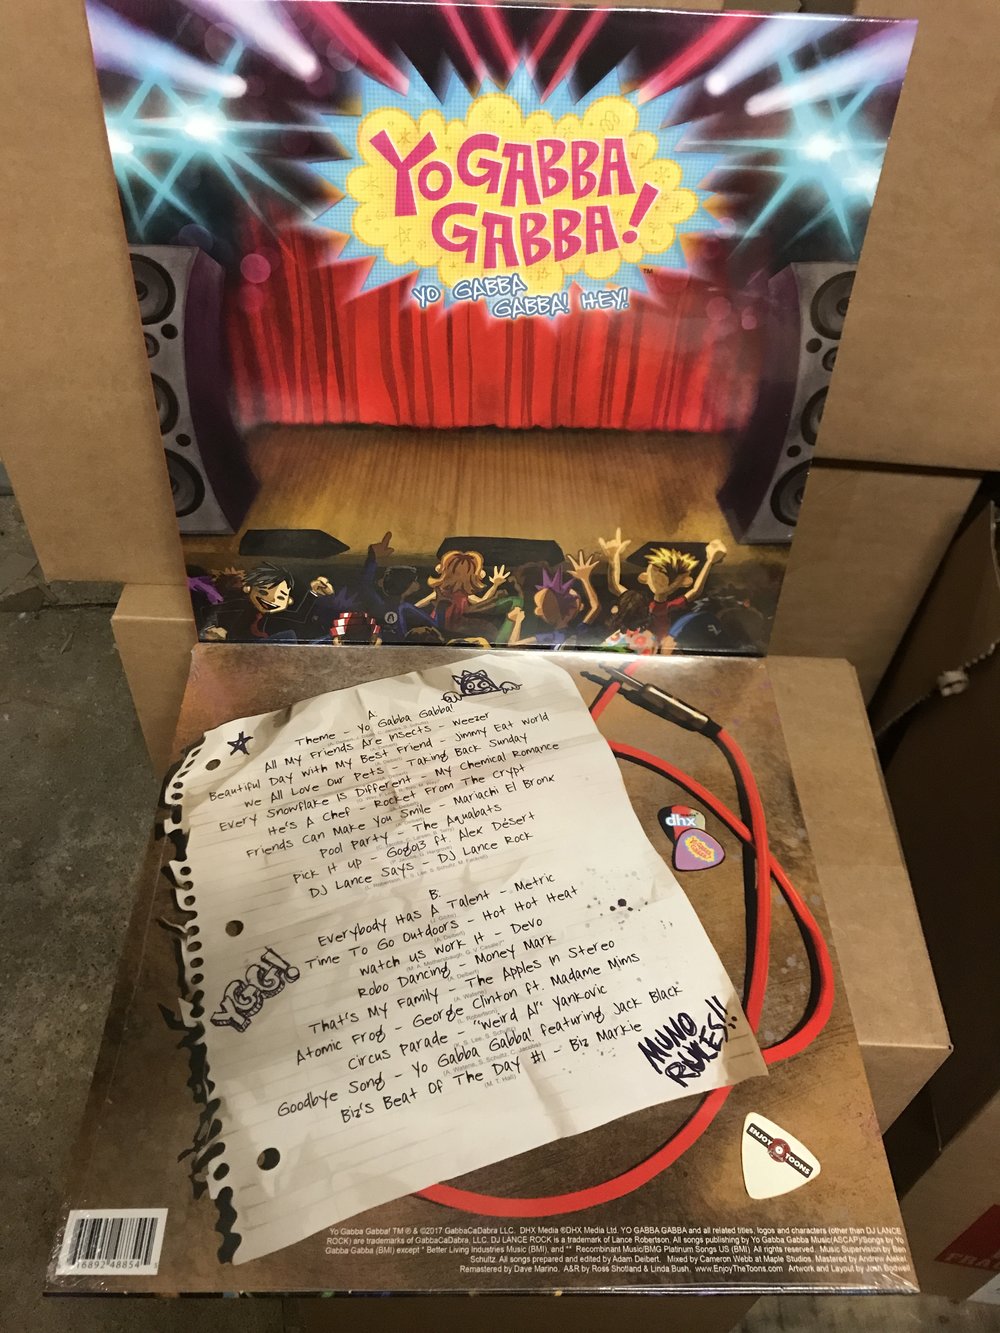 YO GABBA
GABBA!
TM
YO GABBA
GABBA! HEY!
A.
Theme - Yo Gabba Gabba!
All My Friends Are Insects - Weezer
Beautiful Day With My Best Friend - Jimmy Eat World
We All Love Our Pets - Taking Back Sunday
Every Snowflake Is Different - My Chemical Romance
He's A Chef - Rocket From The Crypt
Friends Can Make You Smile - Mariachi El Bronx
Pool Party - The Aquabats
Pick It Up - Gogo13 ft. Alex Désert
DJ Lance Says - DJ Lance Rock
B.
Everybody Has A Talent - Metric
Time To Go Outdoors - Hot Hot Heat
Watch Us Work It - Devo
Robo Dancing - Money Mark
That's My Family - The Apples In Stereo
Atomic Frog - George Clinton ft. Madame Mims
Circus Parade - "Weird Al" Yankovic
Goodbye Song - Yo Gabba Gabba! featuring Jack Black
(A. Watena, S. Schultz, C. Jacobs)
Biz's Beat Of The Day #1 - Biz Markie
(M. T. Hall)
YGG!
MUNO
RULES!!
dhx
YO GABBA
GABBA!
ENJOY TOONS
Yo Gabba Gabba! TM ® & ©2017 GabbaCaDabra LLC. DHX Media ®DHX Media Ltd. YO GABBA GABBA and all related titles, logos and characters (other than DJ LANCE
ROCK) are trademarks of GabbaCaDabra, LLC. DJ LANCE ROCK is a trademark of Lance Robertson. All songs publishing by Yo Gabba Gabba Music(ASCAP)/Songs by Yo
Gabba Gabba (BMI) except * Better Living Industries Music (BMI), and ** Recombinant Music/BMG Platinum Songs US (BMI). All rights reserved. Music Supervision by Ben
Schultz. All songs prepared and edited by Adam Deibert. Mixed by Cameron Webb at Maple Studios. Mastered by Andrew Alekel.
Remastered by Dave Marino. A&R by Ross Shotland & Linda Bush. www.EnjoyTheToons.com Artwork and Layout by Josh Bodwell
16892 48854